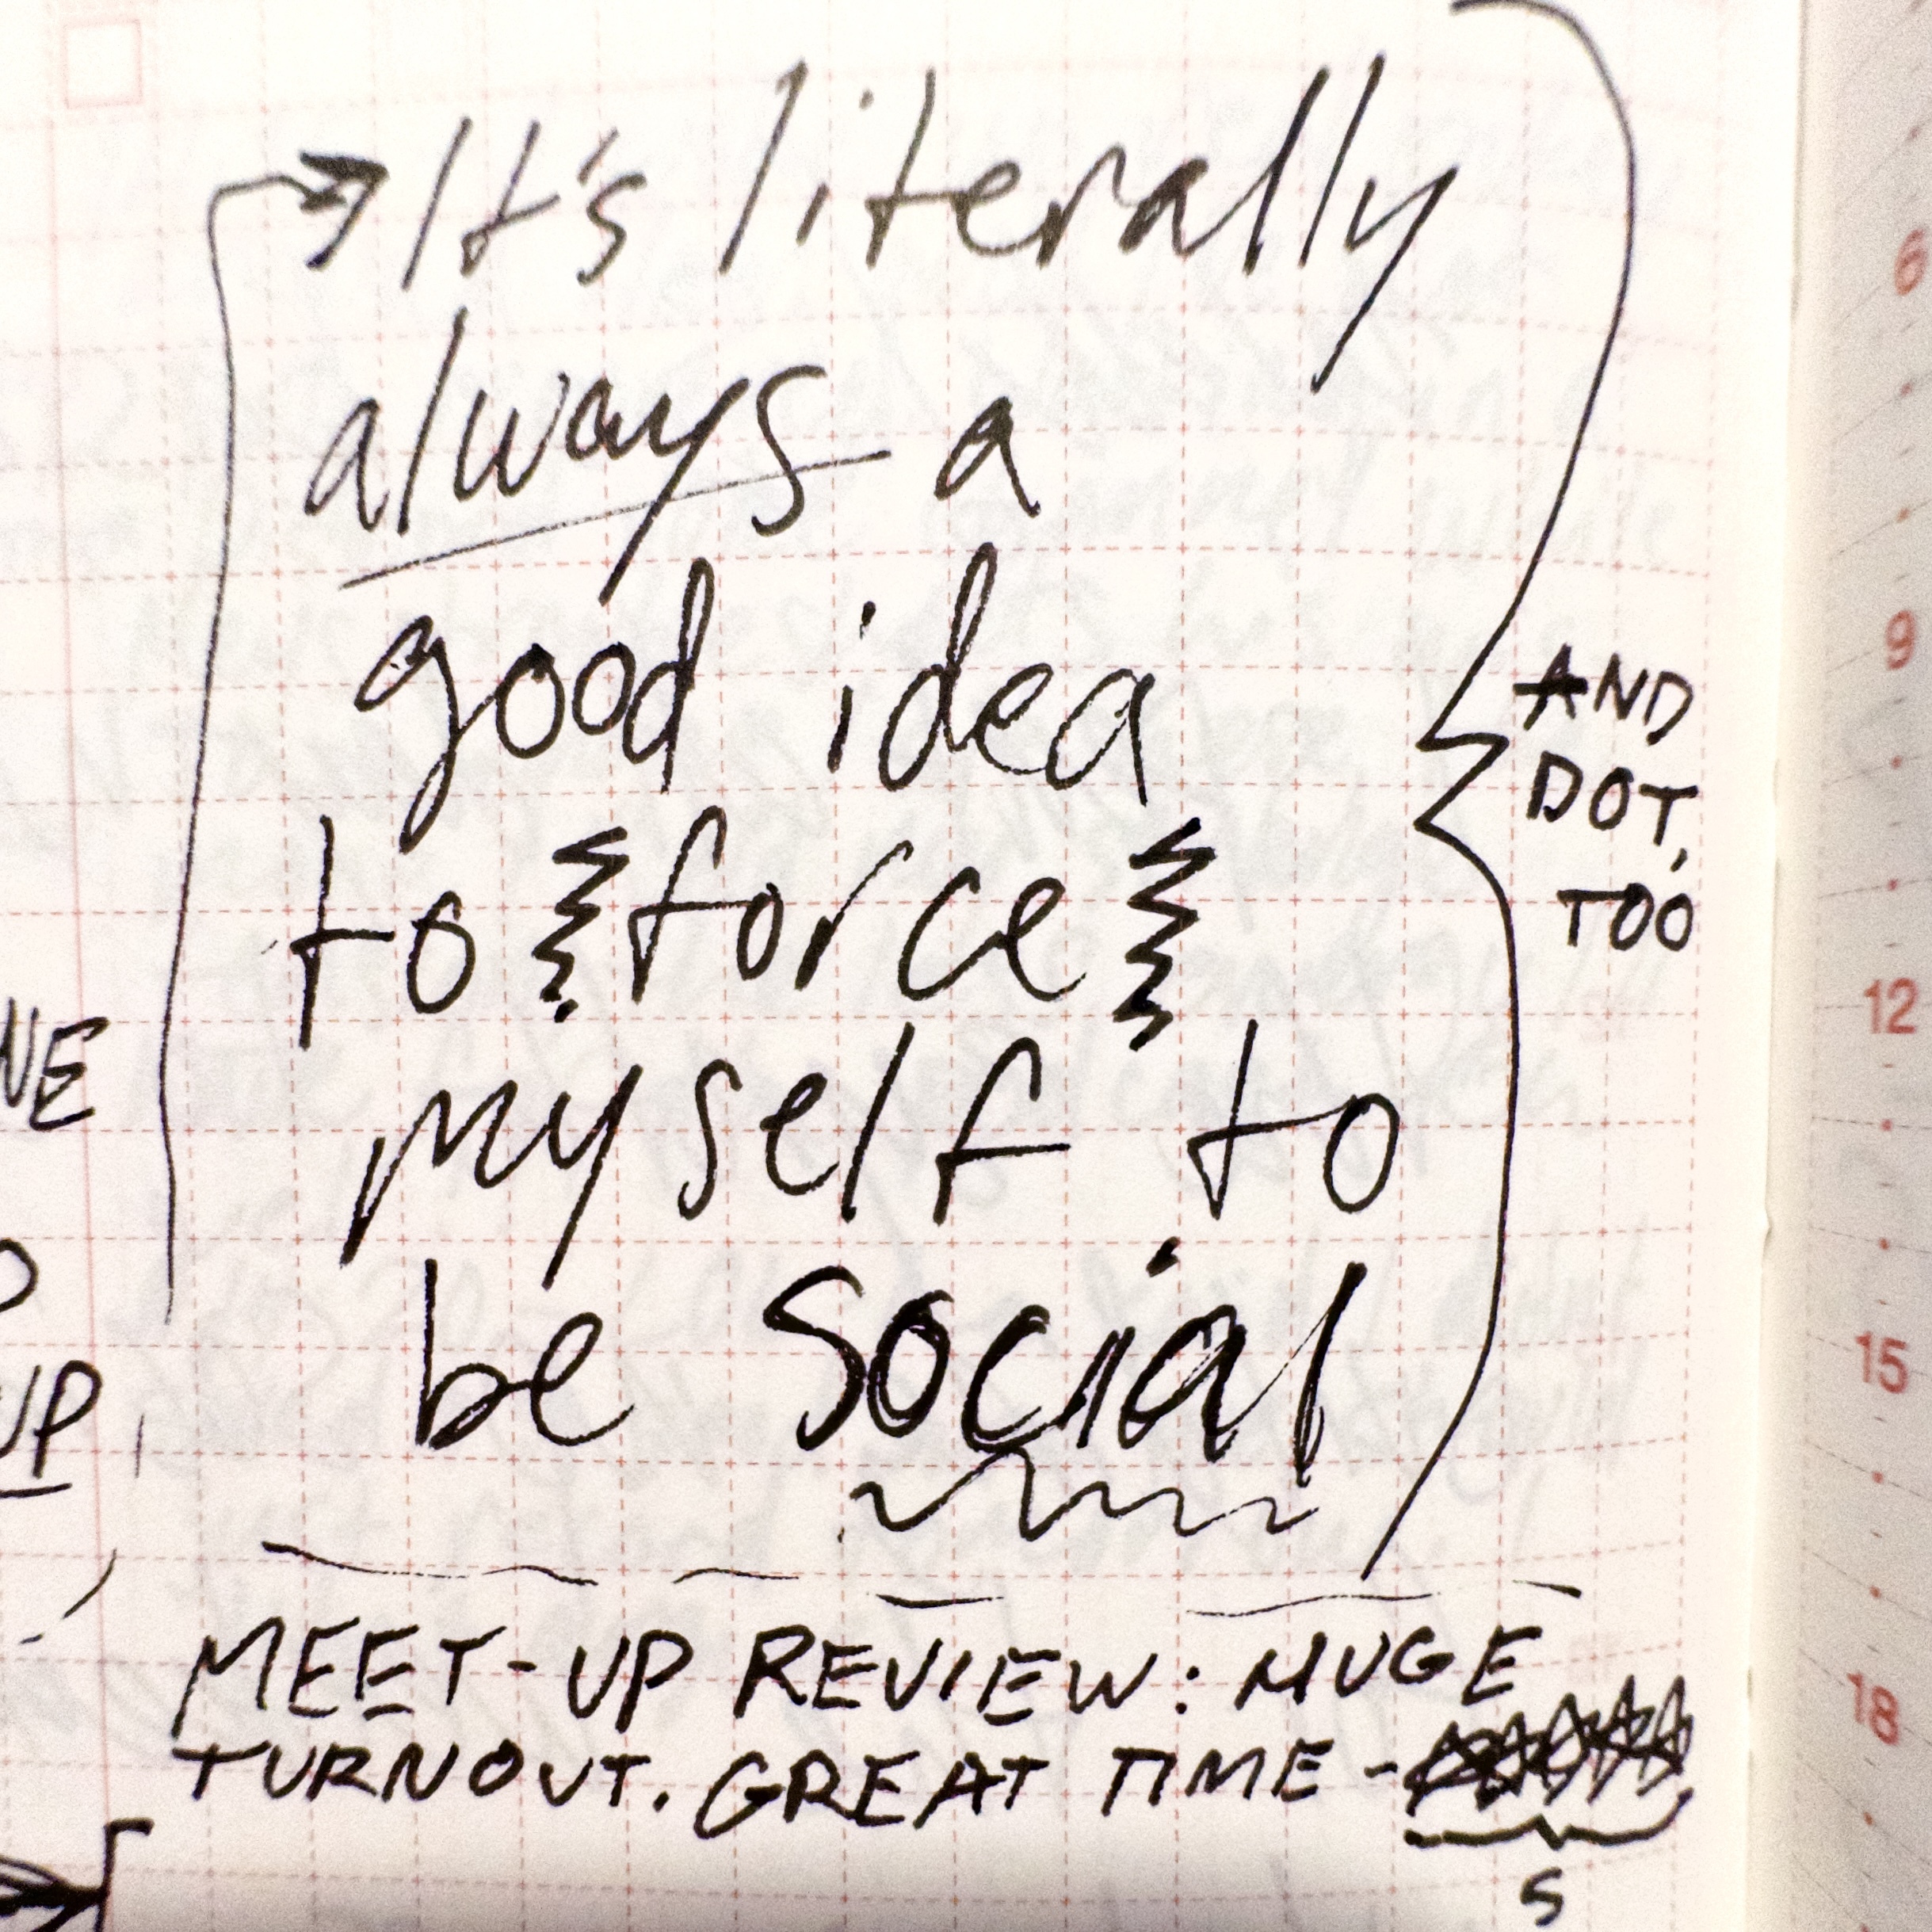 It's literally
always a
good idea
to force
myself to
be social
AND
DOT,
TOO
MEET-UP REVIEW: HUGE
TURNOUT. GREAT TIME -
S
NE
UP
6
9
12
15
18